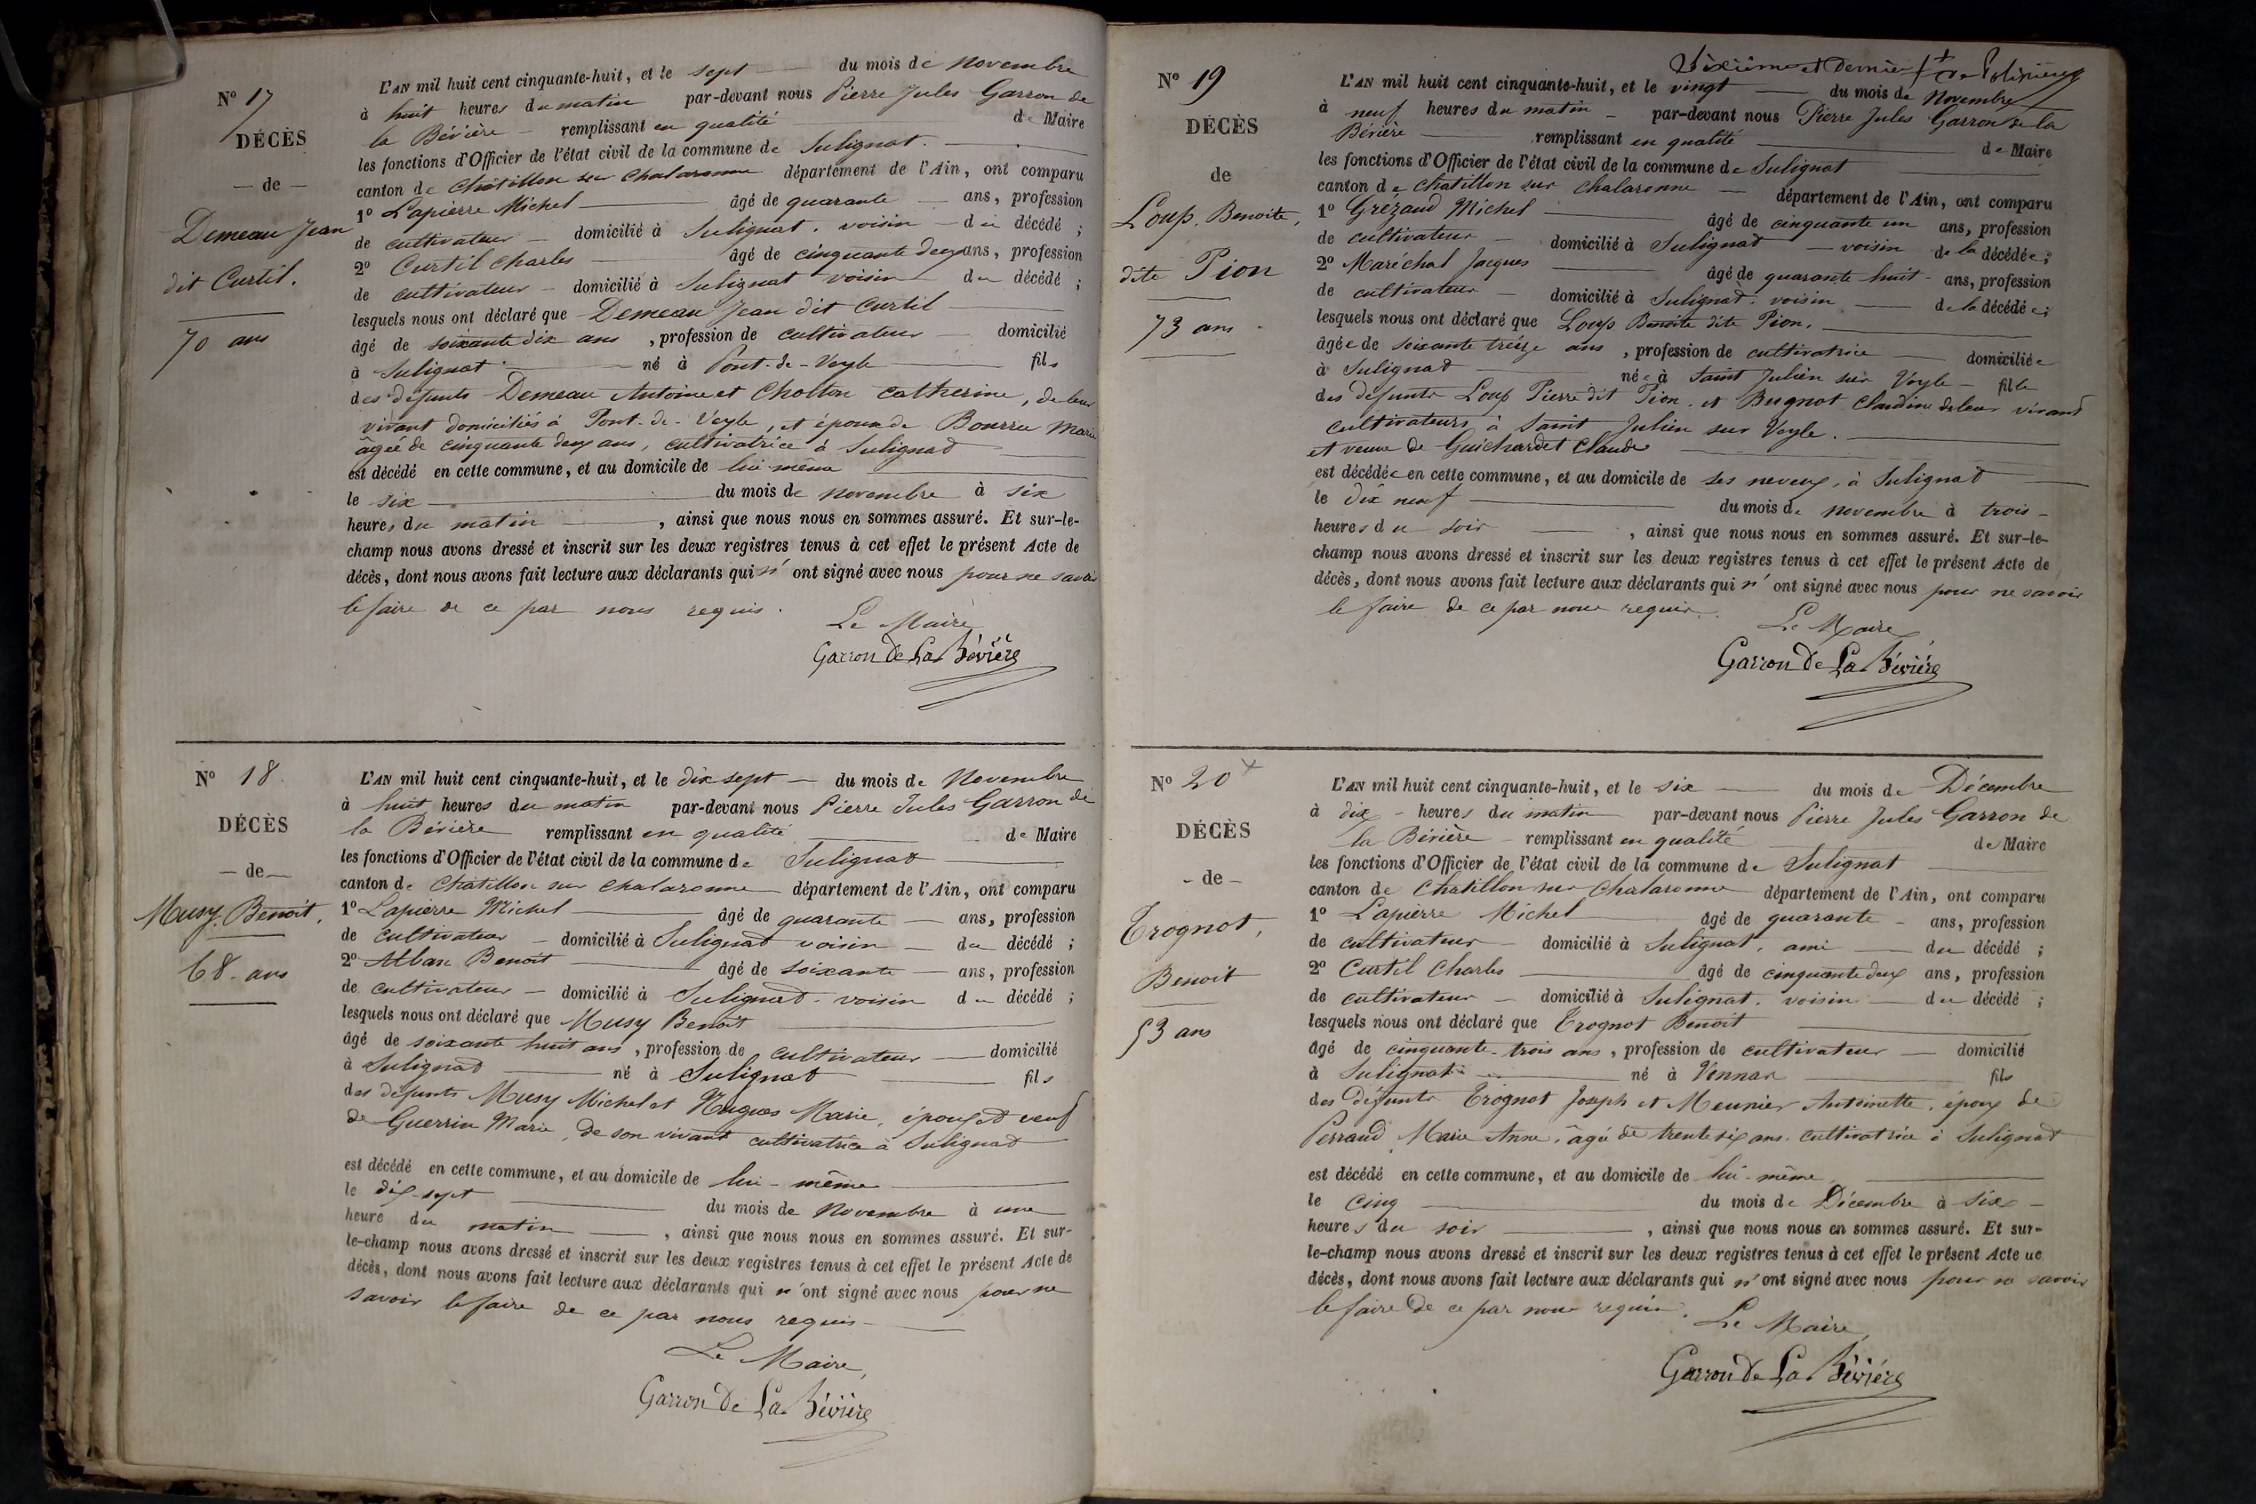 N° 17
DÉCÈS
— de —
Demeau Jean
dit Curtil.
70 ans
L'AN mil huit cent cinquante-huit, et le sept du mois de Novembre
à huit heures du matin par-devant nous Pierre Jules Garron de
la Bévière remplissant en qualité de Maire
les fonctions d'Officier de l'état civil de la commune de Sulignat.
canton de Châtillon sur Chalaronne département de l'Ain, ont comparu
1° Lapierre Michel âgé de quarante ans, profession
de cultivateur domicilié à Sulignat, voisin du décédé ;
2° Curtil Charles âgé de cinquante deux ans, profession
de cultivateur domicilié à Sulignat voisin du décédé ;
lesquels nous ont déclaré que Demeau Jean dit Curtil
âgé de soixante dix ans , profession de cultivateur domicilié
à Sulignat né à Pont-de-Veyle fils
des défunts Demeau Antoine et Chollon Catherine, de leur
vivant domiciliés à Pont-de-Veyle, et époux de Bourru Marie
âgée de cinquante deux ans, cultivatrice à Sulignat
est décédé en cette commune, et au domicile de lui-même
le six du mois de novembre à six
heures du matin , ainsi que nous nous en sommes assuré. Et sur-le-
champ nous avons dressé et inscrit sur les deux registres tenus à cet effet le présent Acte de
décès, dont nous avons fait lecture aux déclarants qui n'ont signé avec nous pour ne savoir
le faire de ce par nous requis.
Le Maire
Garron De La Bévière
N° 18
DÉCÈS
— de —
Musy Benoit.
68 ans
L'AN mil huit cent cinquante-huit, et le dix sept du mois de Novembre
à huit heures du matin par-devant nous Pierre Jules Garron de
la Bévière remplissant en qualité de Maire
les fonctions d'Officier de l'état civil de la commune de Sulignat
canton de Chatillon sur Chalaronne département de l'Ain, ont comparu
1° Lapierre Michel âgé de quarante ans, profession
de cultivateur domicilié à Sulignat voisin du décédé ;
2° Alban Benoit âgé de soixante ans, profession
de cultivateur domicilié à Sulignat voisin du décédé ;
lesquels nous ont déclaré que Musy Benoit
âgé de soixante huit ans , profession de cultivateur domicilié
à Sulignat né à Sulignat fils
des défunts Musy Michel et Hugues Marie, époux et veuf
de Guerrin Marie, de son vivant cultivatrice à Sulignat
est décédé en cette commune, et au domicile de lui-même
le dix-sept du mois de Novembre à une
heure du matin , ainsi que nous nous en sommes assuré. Et sur-
le-champ nous avons dressé et inscrit sur les deux registres tenus à cet effet le présent Acte de
décès, dont nous avons fait lecture aux déclarants qui n'ont signé avec nous pour ne
savoir le faire de ce par nous requis
Le Maire,
Garron De La Bévière
Sixième et dernier
N° 19
DÉCÈS
de
Loup Benoite,
dite Pion
73 ans
L'AN mil huit cent cinquante-huit, et le vingt du mois de Novembre
à neuf heures du matin par-devant nous Pierre Jules Garron de la
Bévière remplissant en qualité de Maire
les fonctions d'Officier de l'état civil de la commune de Sulignat
canton de Chatillon sur Chalaronne département de l'Ain, ont comparu
1° Grézaud Michel âgé de cinquante un ans, profession
de cultivateur domicilié à Sulignat voisin de la décédée ;
2° Maréchal Jacques âgé de quarante huit ans, profession
de cultivateur domicilié à Sulignat voisin de la décédée ;
lesquels nous ont déclaré que Loup Benoite dite Pion,
âgée de soixante treize ans , profession de cultivatrice domiciliée
à Sulignat née à Saint Julien sur Veyle fille
des défunts Loup Pierre dit Pion et Bugnot Claudine de leur vivant
cultivateurs à Saint Julien sur Veyle.
et veuve de Guichardet Claude
est décédée en cette commune, et au domicile de ses neveux, à Sulignat
le dix neuf du mois de novembre à trois
heures du soir , ainsi que nous nous en sommes assuré. Et sur-le-
champ nous avons dressé et inscrit sur les deux registres tenus à cet effet le présent Acte de
décès, dont nous avons fait lecture aux déclarants qui n'ont signé avec nous pour ne savoir
le faire de ce par nous requis.
Le Maire
Garron De La Bévière
N° 20
DÉCÈS
- de -
Trognot,
Benoit
53 ans
L'AN mil huit cent cinquante-huit, et le six du mois de Décembre
à dix heures du matin par-devant nous Pierre Jules Garron de
la Bévière remplissant en qualité de Maire
les fonctions d'Officier de l'état civil de la commune de Sulignat
canton de Chatillon sur Chalaronne département de l'Ain, ont comparu
1° Lapierre Michel âgé de quarante ans, profession
de cultivateur domicilié à Sulignat, ami du décédé ;
2° Curtil Charles âgé de cinquante deux ans, profession
de cultivateur domicilié à Sulignat, voisin du décédé ;
lesquels nous ont déclaré que Trognot Benoit
âgé de cinquante-trois ans , profession de cultivateur domicilié
à Sulignat né à Vonnas fils
des défunts Trognot Joseph et Meunier Antoinette, époux de
Perraud Marie Anne, âgée de trente six ans cultivatrice à Sulignat
est décédé en cette commune, et au domicile de lui-même
le cinq du mois de Décembre à six
heures du soir , ainsi que nous nous en sommes assuré. Et sur-
le-champ nous avons dressé et inscrit sur les deux registres tenus à cet effet le présent Acte de
décès, dont nous avons fait lecture aux déclarants qui n'ont signé avec nous pour ne savoir
le faire de ce par nous requis.
Le Maire,
Garron De La Bévière